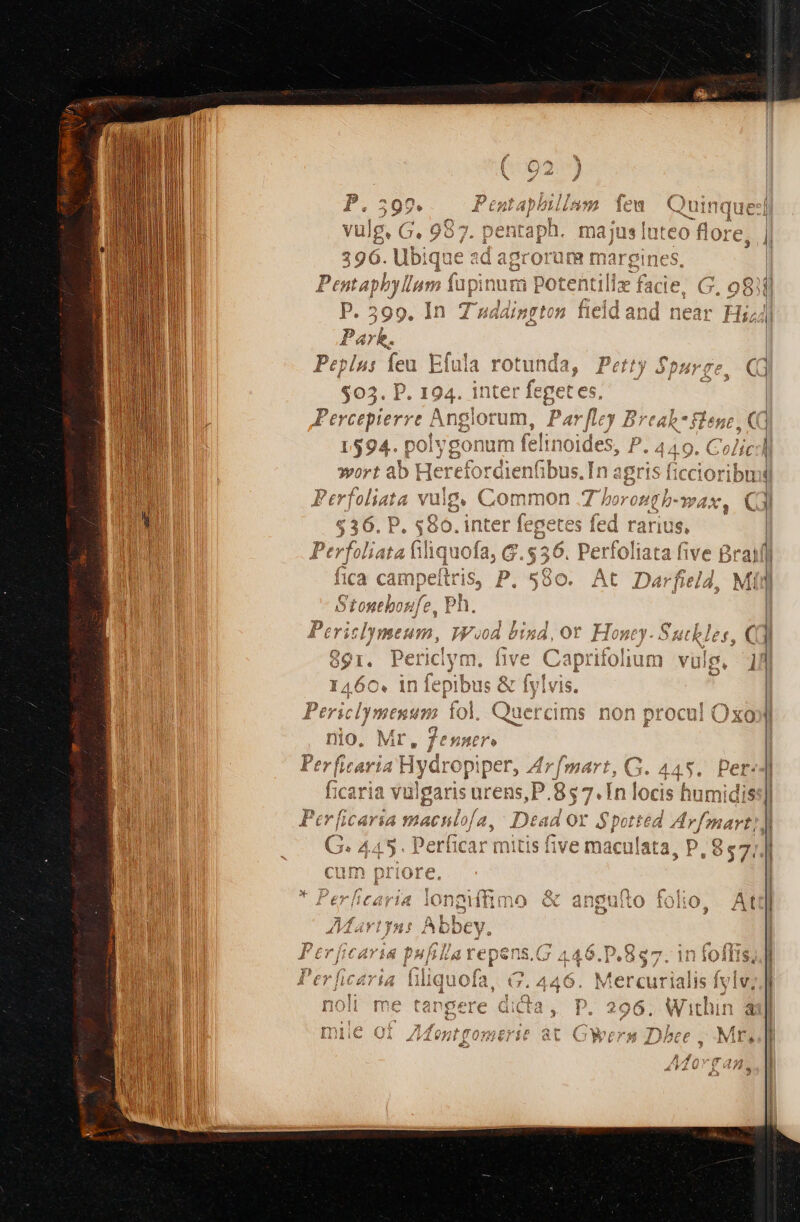 ( 92 )
P. 399. Pentaphillum ſeu Quinque-
vulg. G. 987. pentaph. majus luteo flore,
396. Ubique ad agrorum margines.
Pentaphyllum ſupinum Potentillæ facie, G. 98
P. 399. In Tuddington field and near
Park.
Peplus ſeu Eſula rotunda, Petty Spurge, G
503. P. 194. inter ſegetes.
Percepierre Anglorum, Parſley Break-ſtone, G
1594. polygonum ſelinoides, P. 449. Colic-
wort ab Herefordienſibus. In agris ſiccioribus
Perfoliata vulg. Common Thorough-wax, G
536. P. 580. inter ſegetes ſed rarius.
Perfoliata ſiliquoſa, G. 536. Perfoliata ſive Braſ
ſica campeſtris, P. 580. At Darfield, Mr
Stonehouſe, Ph.
Periclymeum, Wood bind, or Honey-Suckles, G
891. Periclym. ſive Caprifolium vulg.
1460. in ſepibus & ſylvis.
Periclymenum fol. Quercims non procul Oxo
nio. Mr, Jenner.
Perſicaria Hydropiper, Arſmart, G. 445. Per-
ſicaria vulgaris urens, P. 857. In locis humidis
Perſicaria maculoſa, Dead or Spotted Arſmart,
G. 445. Perſicar mitis ſive maculata, P. 857.
cum priore.
* Perſicaria longiſſimo & anguſto folio, At
Martyns Abbey.
Perſicaria puſilla repens. G 446. P. 857. in foſſis.
Perſicaria ſiliquoſa, G. 446. Mercurialis ſylv.
noli me tangere dicta, P. 296. Within a
mile of Montgomerie at Gwern Dhee, Mr.
Morgan,